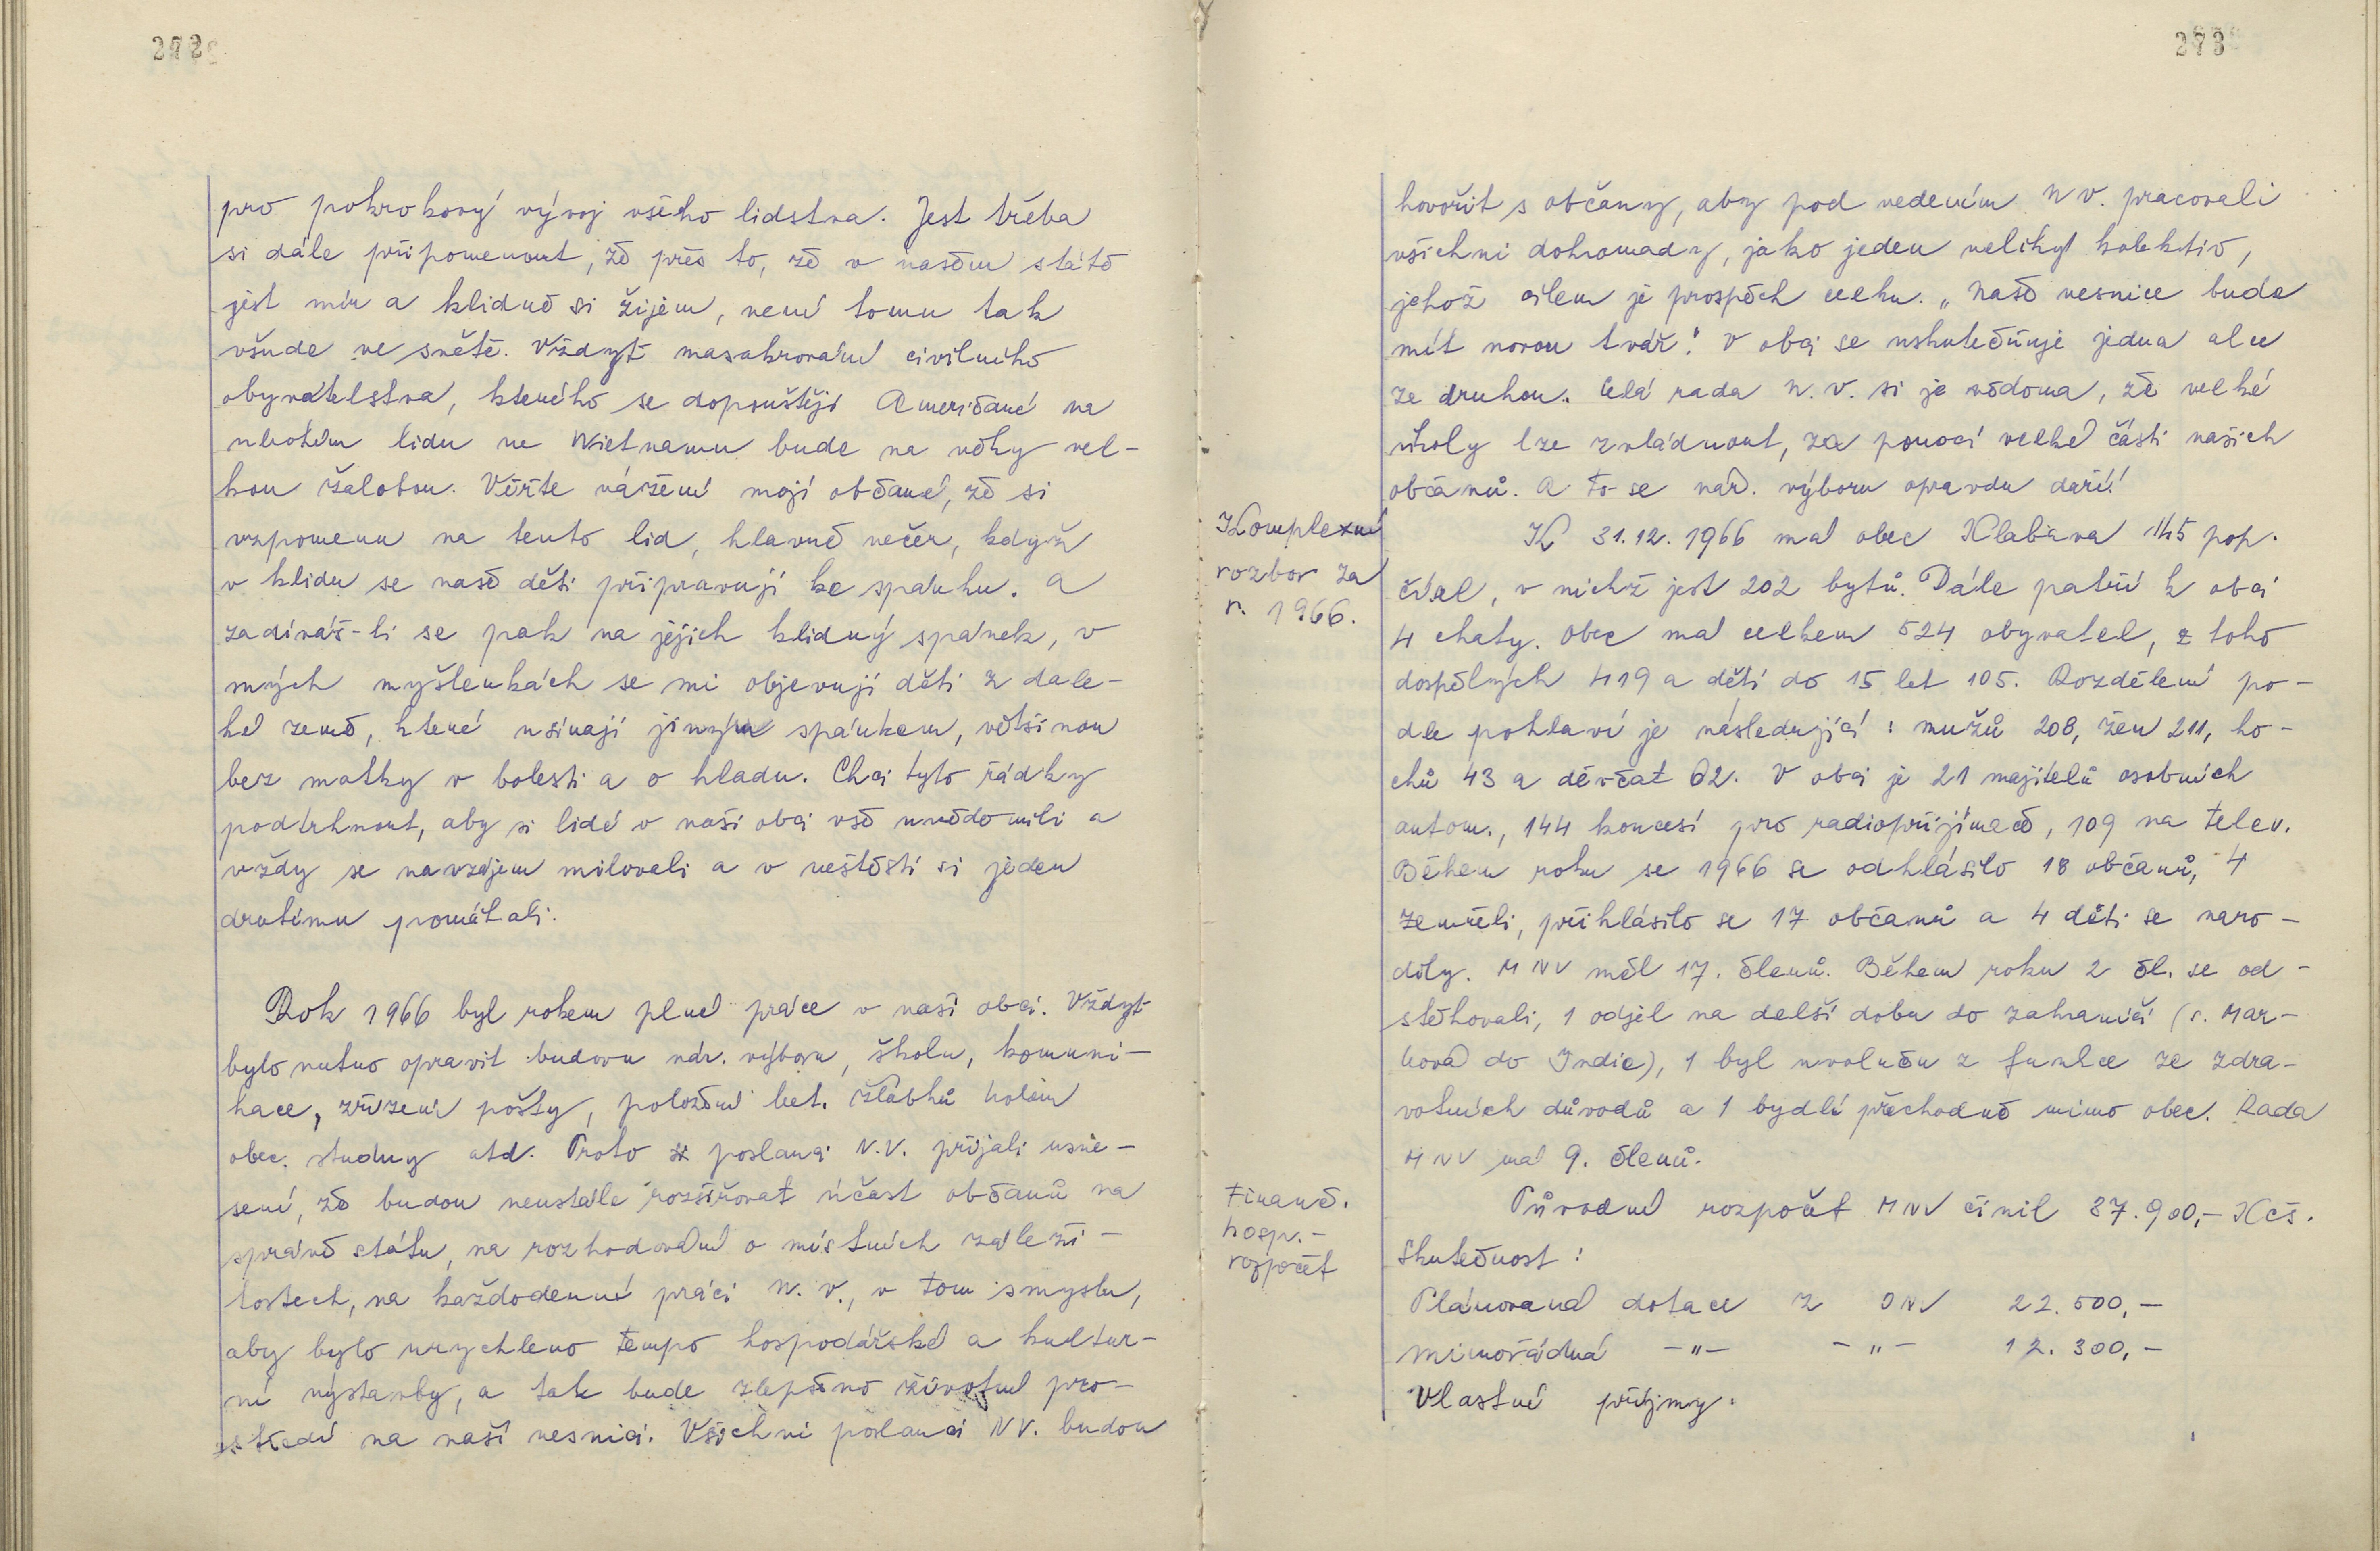 272
pro pokrokový vývoj všeho lidstva. Jest třeba
si dále připomenout, že přes to, že v našem státě
jest mír a klidně si žijem, není tomu tak
všude ve světě. Vždyť masakrování civilního
obyvatelstva, kterého se dopouštějí Američané na
ubohém lidu ve Wietnamu bude na věky vel-
kou žalobou. Věřte vážení moji občané, že si
vzpomenu na tento lid, hlavně večer, když
v klidu se naše děti připravují ke spánku. A
zadíváš-li se pak na jejich klidný spánek, v
mých myšlenkách se mi objevují děti z dale-
ké země, které usínají jiným spánkem, většinou
bez matky v bolesti a o hladu. Chci tyto řádky
podtrhnout, aby si lidé v naší obci vše uvědomili a
vždy se navzájem milovali a v neštěstí si jeden
druhému pomáhali.
Rok 1966 byl rokem plné práce v naší obci. Vždyť
bylo nutno opravit budovu nár. výboru, školu, komuni-
kace, zřízení pošty, položení bet. žlabků kolem
obec. studny atd. Proto si poslanci N.V. přijali usne-
sení, že budou neustále rozšiřovat účast občanů na
správě státu, na rozhodování o místních záleži-
tostech, na každodenní práci N. V., v tom smyslu,
aby bylo urychleno tempo hospodářské a kultur-
ní výstavby, a tak bude zlepšeno životní pro-
středí na naší vesnici. Všichni poslanci NV. budou
273
hovořit s občany, aby pod vedením NV. pracovali
všichni dohromady, jako jeden veliký kolektiv,
jehož cílem je prospěch celku. „Naše vesnice bude
mít novou tvář." V obci se uskutečňuje jedna akce
za druhou. Celá rada N.V. si je vědoma, že velké
úkoly lze zvládnout, za pomoci velké části našich
občanů. A to se nár. výboru opravdu daří!
Komplexní
rozbor za
r. 1966.
K 31.12. 1966 má obec Klabava 145 pop.
čísel, v nichž jest 202 bytů. Dále patří k obci
4 chaty. Obec má celkem 524 obyvatel, z toho
dospělých 419 a dětí do 15 let 105. Rozdělení po-
dle pohlaví je následující: mužů 208, žen 211, ho-
chů 43 a děvčat 62. V obci je 21 majitelů osobních
autom., 144 koncesí pro radiopřijímače, 109 na telev.
Během roku se 1966 se odhlásilo 18 občanů, 4
zemřeli, přihlásilo se 17 občanů a 4 děti se naro-
dily. MNV měl 17. členů. Během roku 2 čl. se od-
stěhovali, 1 odjel na delší dobu do zahraničí (s. Mar-
ková do Indie), 1 byl uvolněn z funkce ze zdra-
votních důvodů a 1 bydlí přechodně mimo obec. Rada
MNV má 9. členů.
Financ.
hosp.-
rozpočet
Původní rozpočet MNV činil 87.900,- Kčs.
Skutečnost:
Plánovaná dotace z ONV 22.500,-
Mimořádná -„- -„- 12.300,-
Vlastní příjmy: